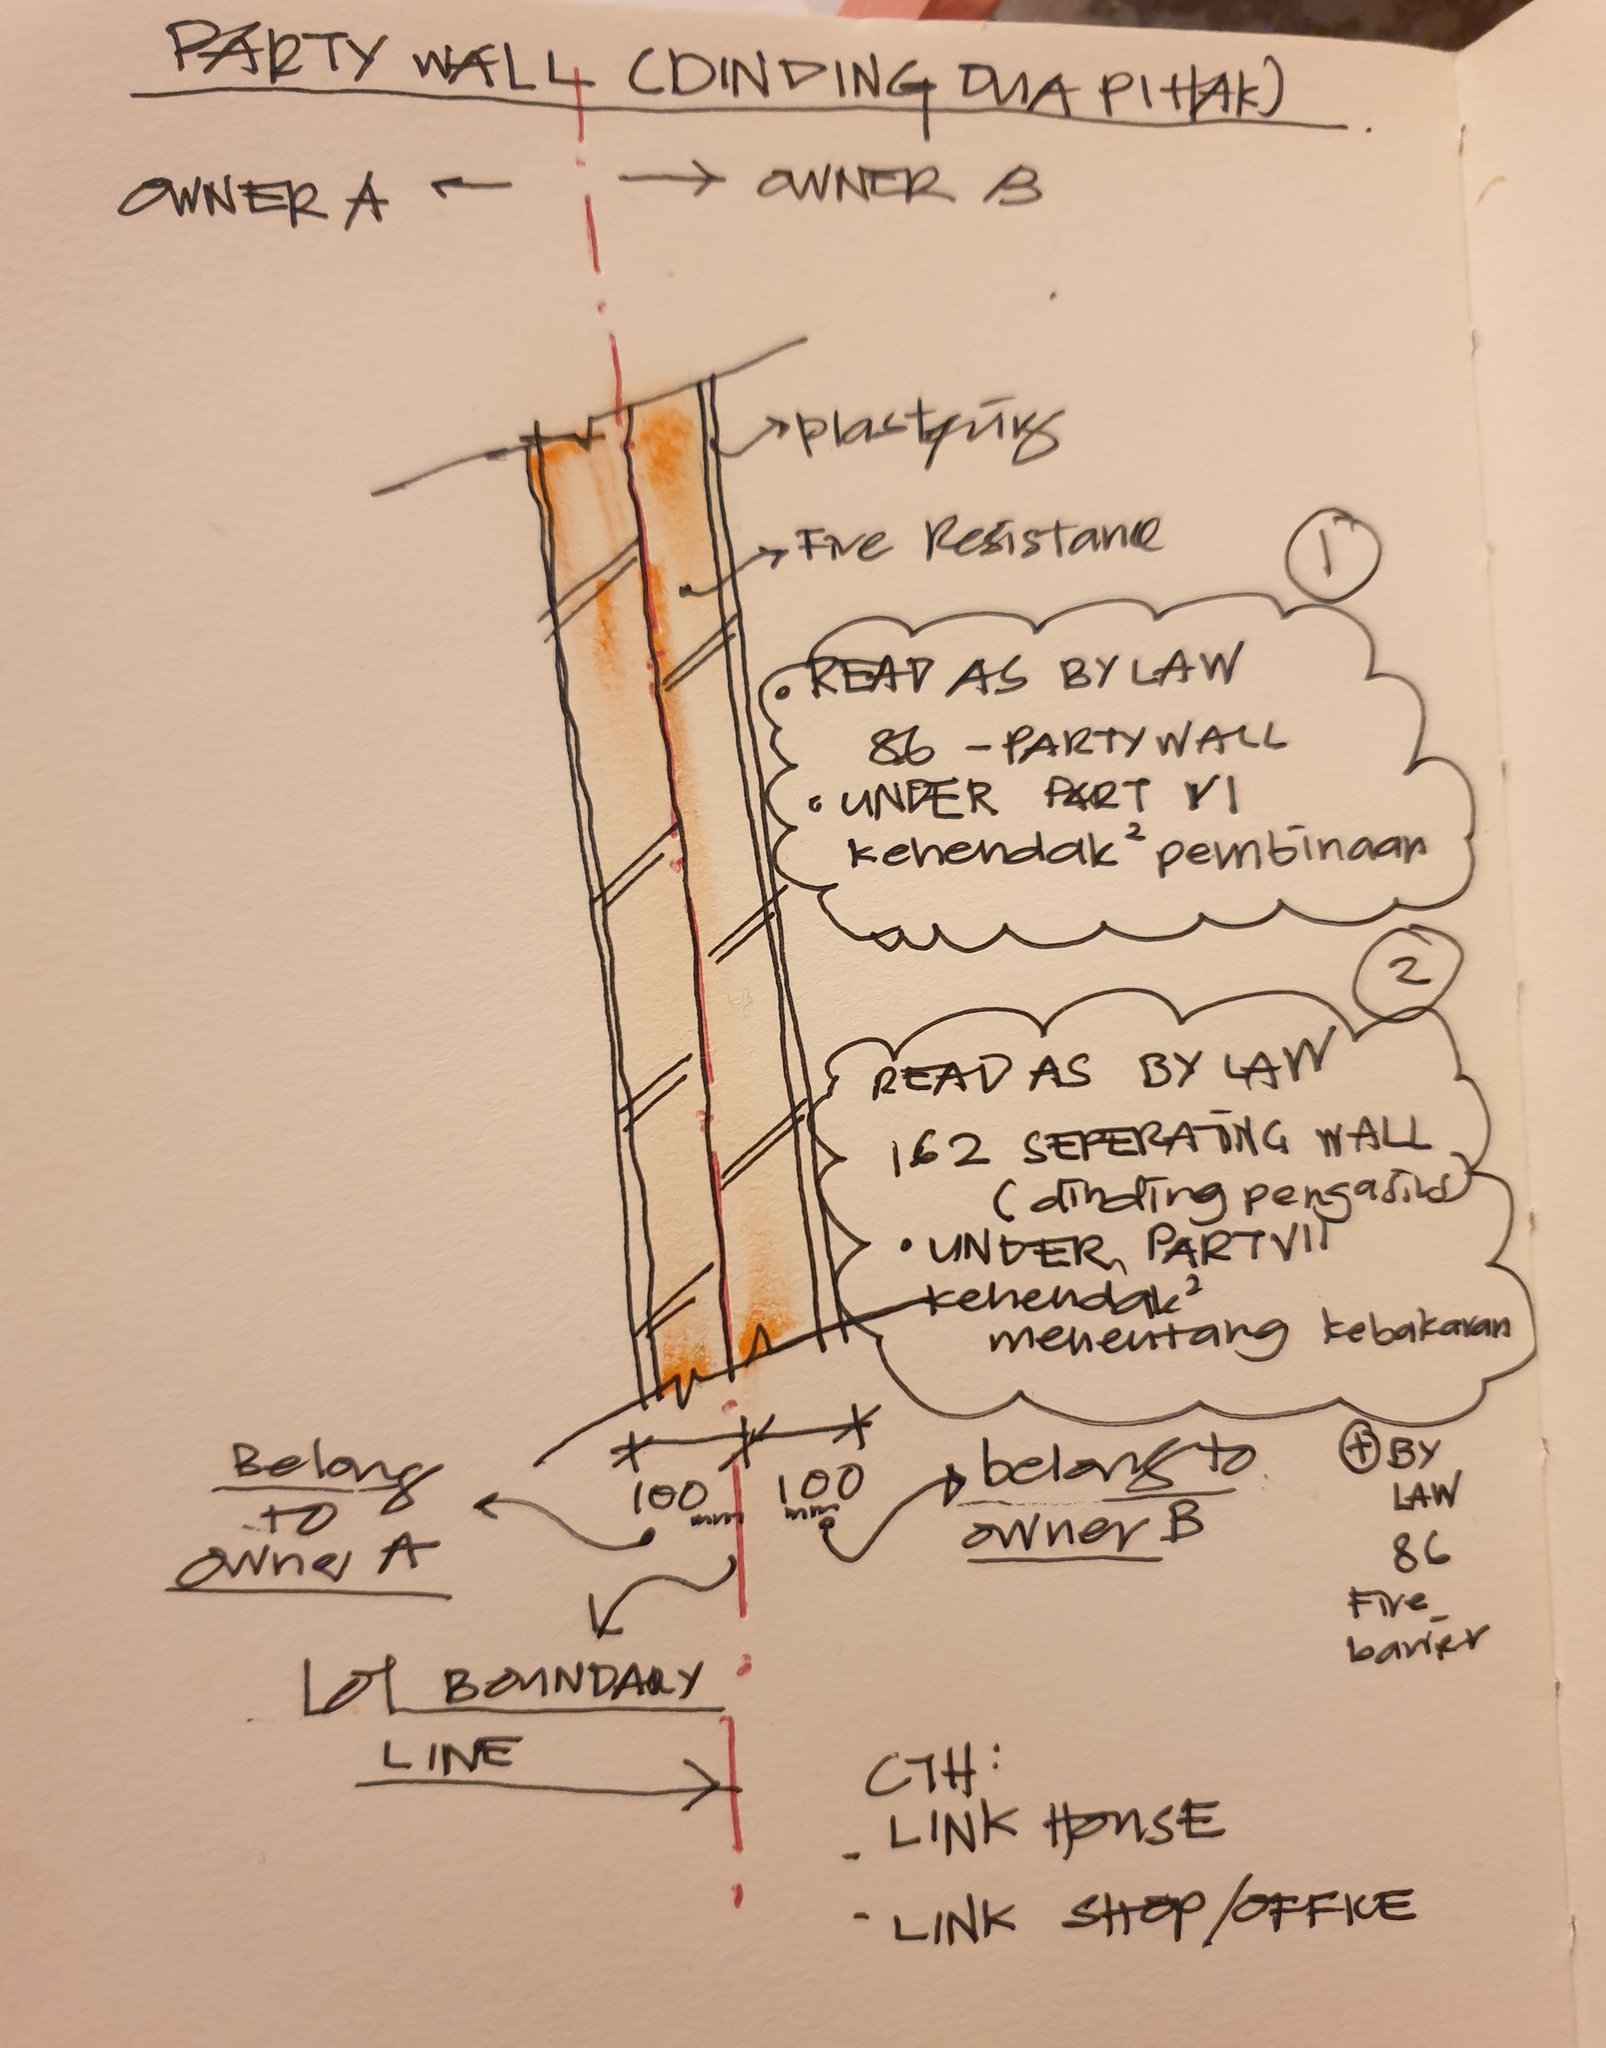 PARTY WALL (DINDING DUA PIHAK)
OWNER A
OWNER B
plastering
Fire Resistance
1
• READ AS BY LAW
86 - PARTY WALL
• UNDER PART VI
kehendak² pembinaan
2
READ AS BY LAW
162 SEPERATING WALL
(dinding pengasing)
• UNDER PART VII
kehendak²
menentang kebakaran
Belong
to
owner A
100 mm
100 mm
belong to
owner B
+ BY
LAW
86
Fire
barrier
LOT BOUNDARY
LINE
CTH:
- LINK HOUSE
- LINK SHOP/OFFICE